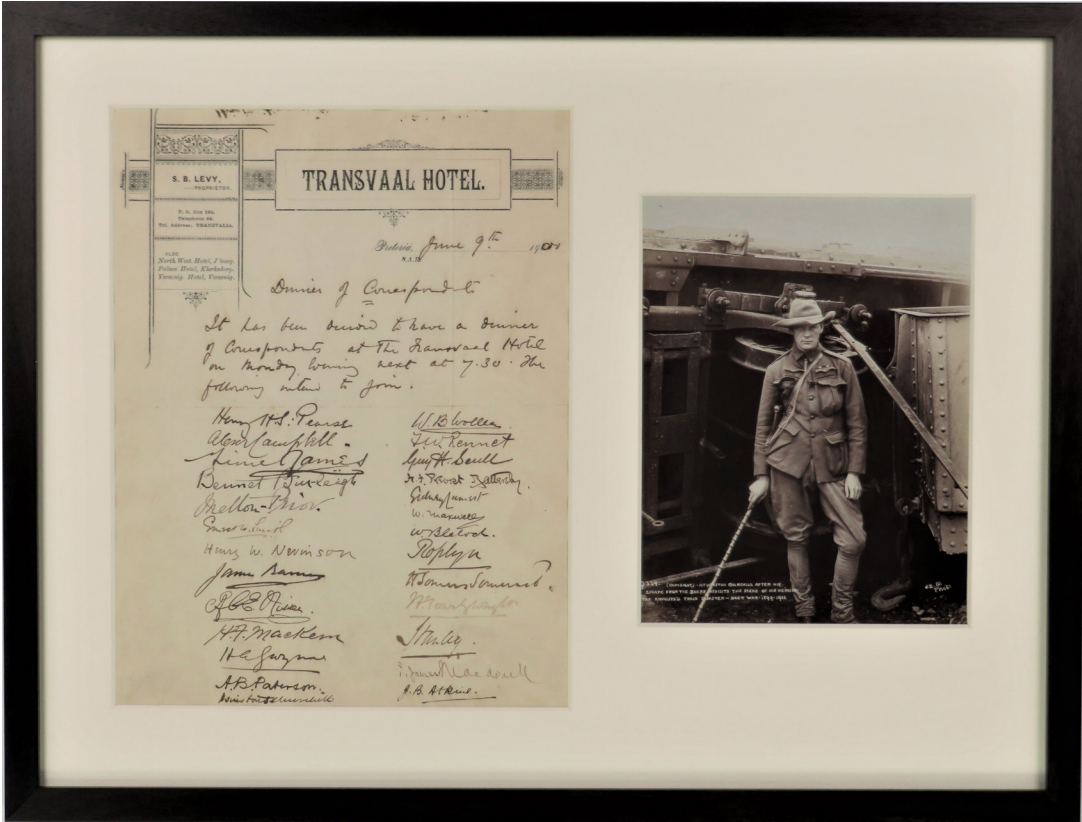 S. B. LEVY,
PROPRIETOR.
P. O. Box
Telephone
Tel. Address: TRANSVALIA.
ALSO
North West. Hotel, J'burg.
Palace Hotel, Klerksdorp.
Vereenig. Hotel, Vereenig.
TRANSVAAL HOTEL.
Pretoria, June 9th 1900
Dinner of Correspondents
It has been decided to have a dinner
of Correspondents at The Transvaal Hotel
on Monday Evening next at 7.30. The
following intend to join.
Henry H.S. Pearse
Alex Campbell.
Lionel James
Bennet Burleigh
Melton Prior.
Ernest W. Smith
Henry W. Nevinson
James Barnes
H.F. Mackern
H A Gwynne
A.B. Paterson.
Winston S. Churchill
W.B. Wollen
Guy H. Scull
H. F. Prevost Battersby.
W. Maxwell
H Somers Somerset.
Stanley
J.B. Atkins.
ESCAPE FROM THE BOERS REVISITS THE SCENE OF HIS HEROISM
THE ARMOURED TRAIN DISASTER - BOER WAR - 1899-1900